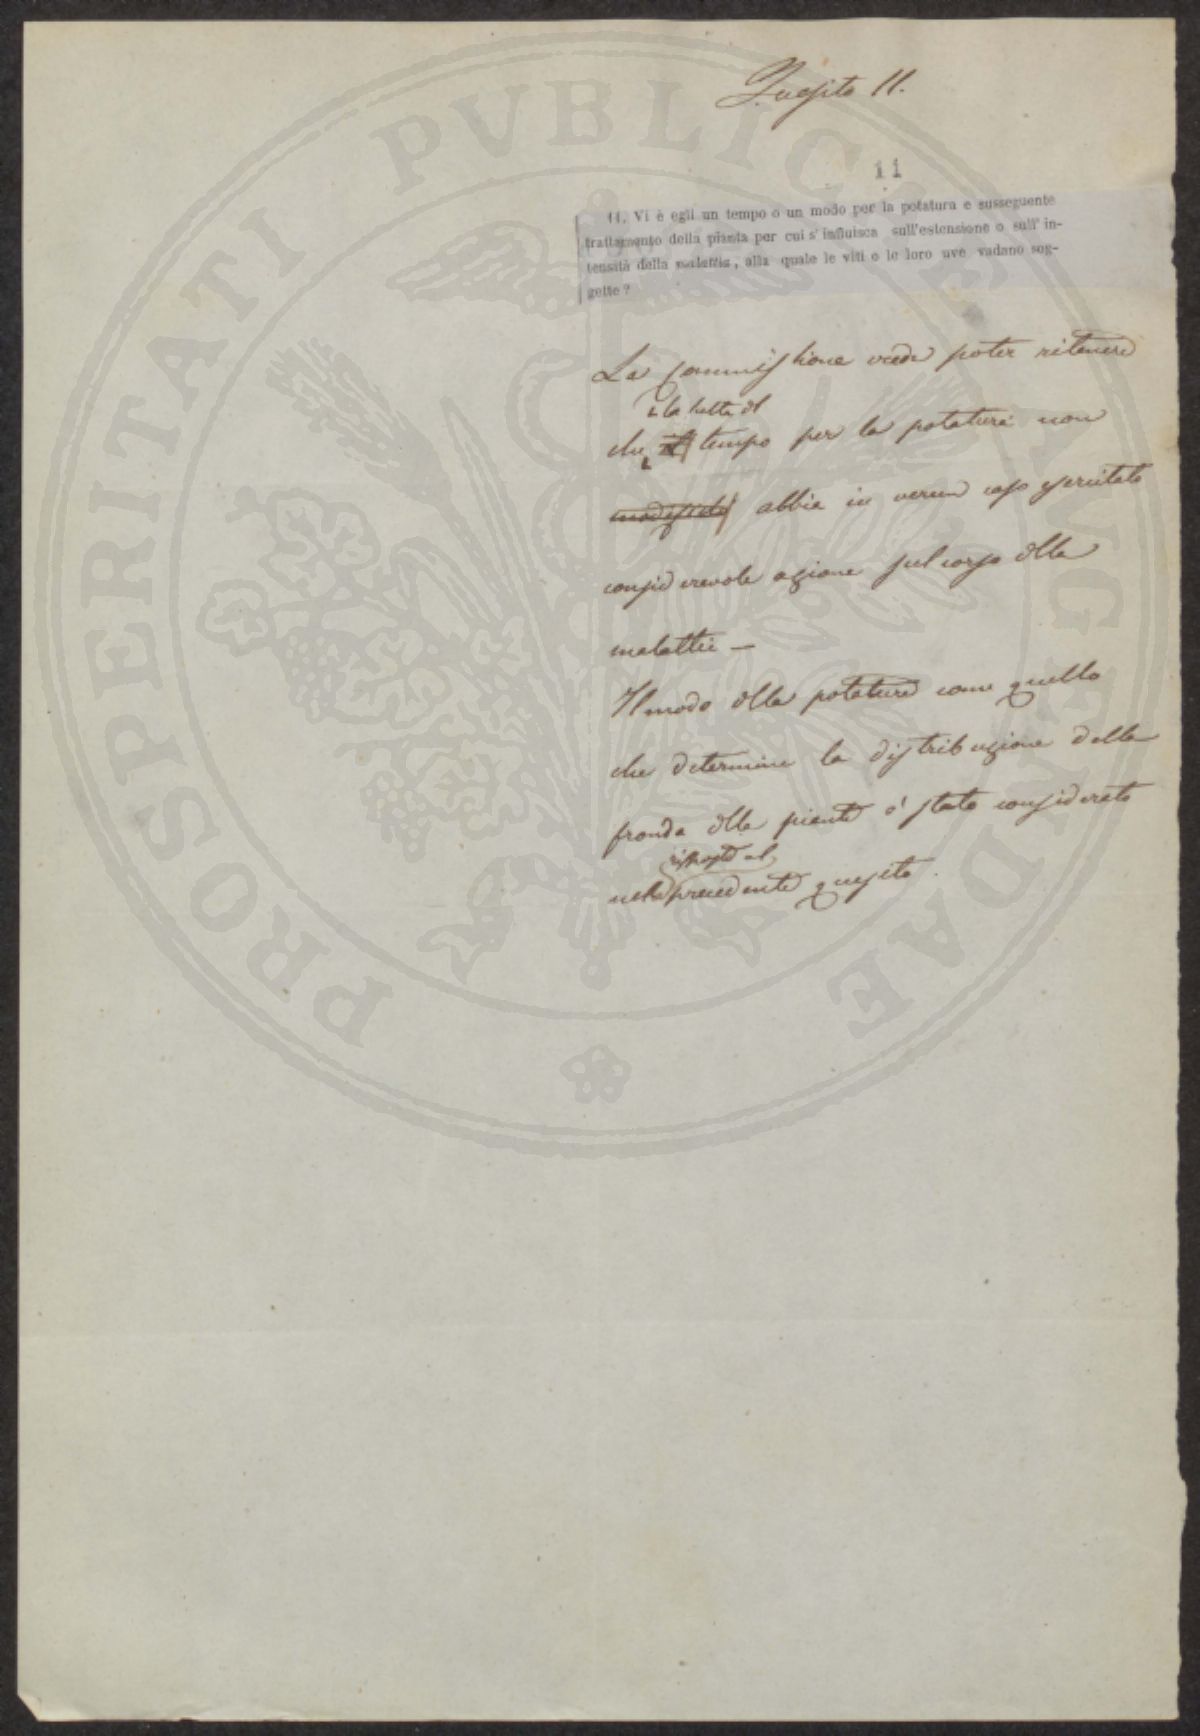 Quesito 11.
11
11. Vi è egli un tempo o un modo per la potatura e susseguente
trattamento della pianta per cui s'influisca sull'estensione o sull'in-
tensità della malattia, alla quale le viti o le loro uve vadano sog-
gette?
La Commissione crede poter ritenere
del
che il tempo per la potatura non
modificato abbia in verun caso esercitato
considerevole azione sul corso della
malattia —
Il modo della potatura come quello
che determina la distribuzione della
fronda della pianta è stato considerato
risposta al
nella precedente quesito.
PROSPERITATI PVBLICAE AVGENDAE